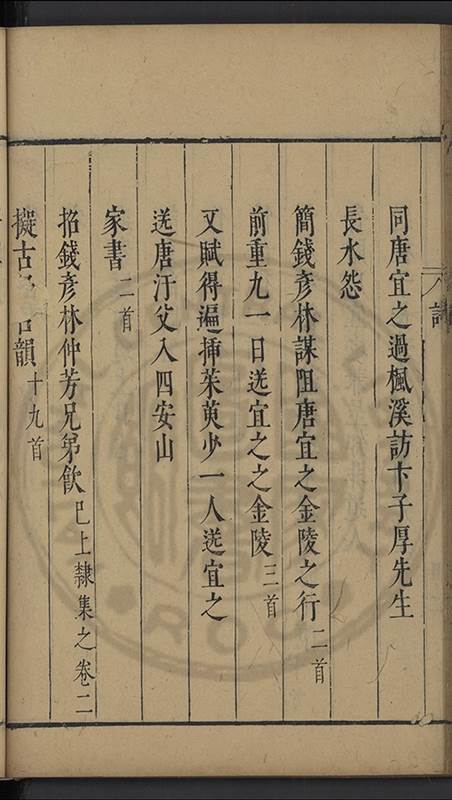 同唐宜之過楓溪訪卞子厚先生
長水怨
簡錢彥林謀阻唐宜之金陵之行二首
前重九一日送宜之之金陵三首
又賦得遍插茱萸少一人送宜之
送唐汙父入四安山
家書二首
招錢彥林仲芳兄弟飲已上隸集之卷二
擬古 韻十九首